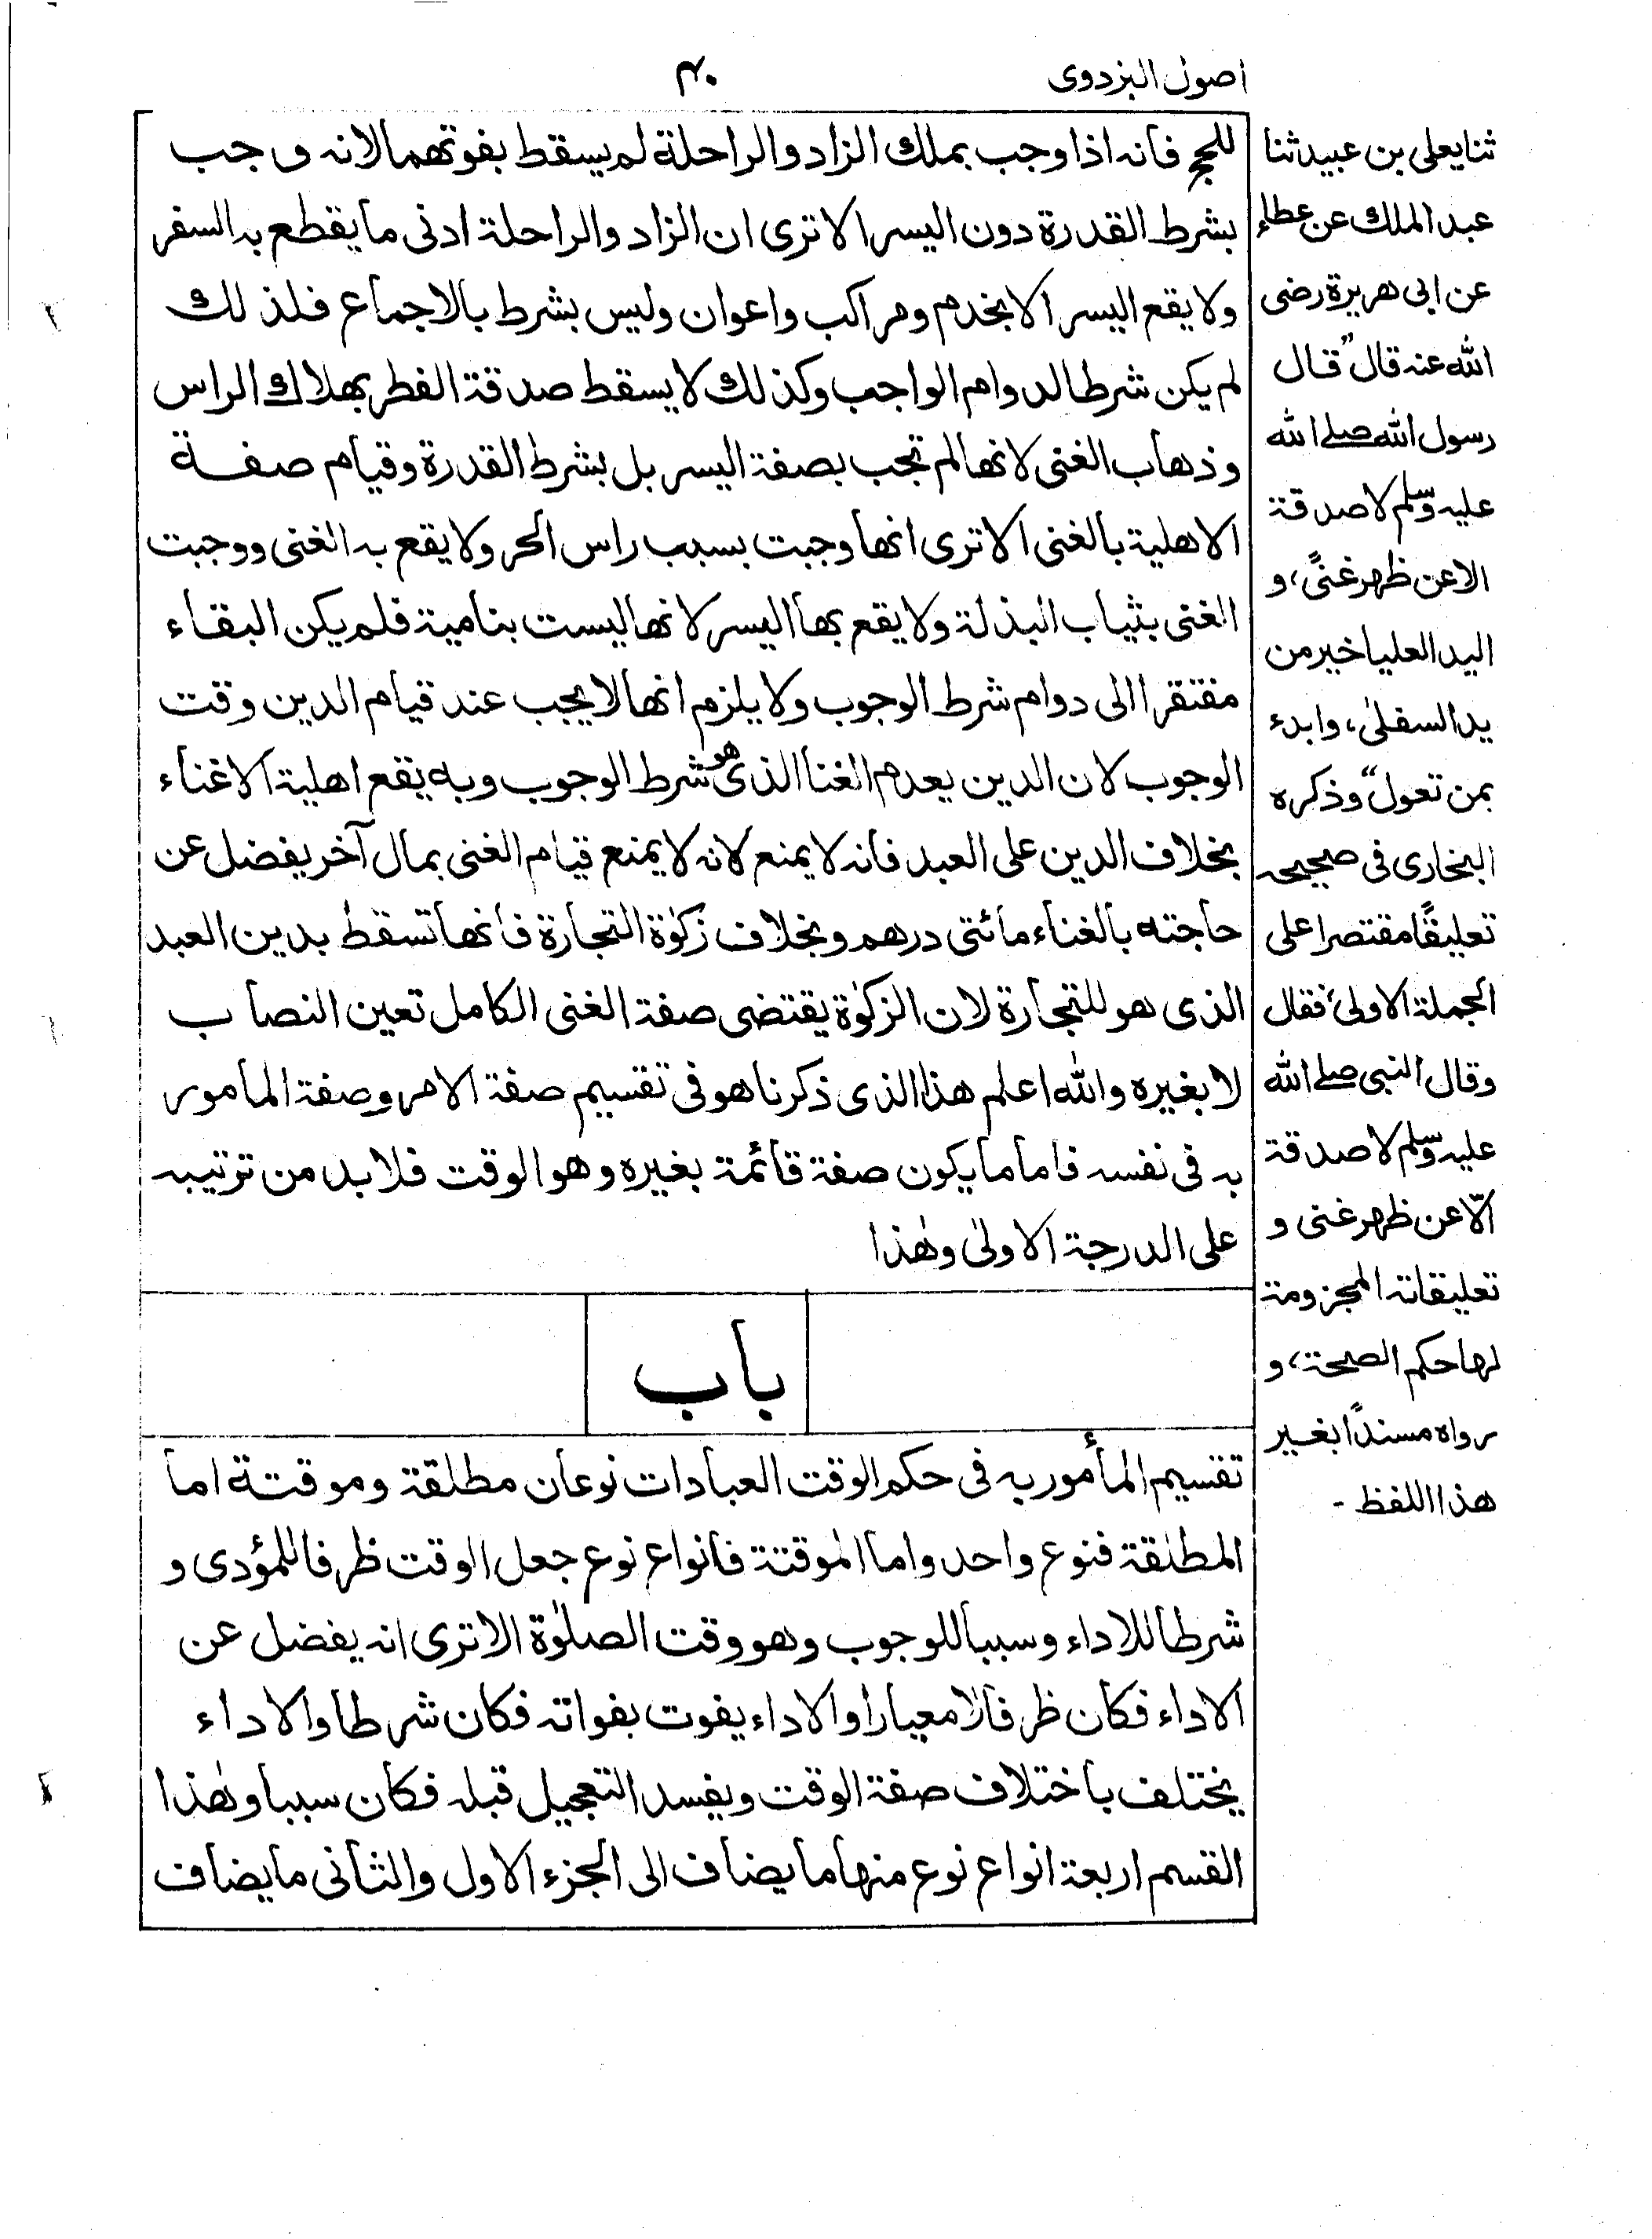 اصول البزدوى
۴۰
للحج فانه اذا وجب بملك الزاد والراحلة لم يسقط بفوتهما لانه وجب
بشرط القدرة دون اليسر الا ترى ان الزاد والراحلة ادنى ما يقطع به السفر
ولا يقع اليسر الا بخدم ومراكب واعوان وليس بشرط بالاجماع فلذلك
لم يكن شرطا لدوام الواجب وكذلك لا يسقط صدقة الفطر بهلاك الراس
وذهاب الغنى لانها لم تجب بصفة اليسر بل بشرط القدرة وقيام صفة
الاهلية بالغنى الا ترى انها وجبت بسبب راس الحر ولا يقع به الغنى ووجبت
الغنى بثياب البذلة ولا يقع بها اليسر لانها ليست بنامية فلم يكن البقاء
مفتقرا الى دوام شرط الوجوب ولا يلزم انها لا يجب عند قيام الدين وقت
الوجوب لان الدين يعدم الغنا الذى هو شرط الوجوب وبه يقع اهلية الاغناء
بخلاف الدين على العبد فانه لا يمنع لانه لا يمنع قيام الغنى بمال آخر يفضل عن
حاجته بالغناء مائتى درهم وبخلاف زكوٰة التجارة فانها تسقط بدين العبد
الذى هو للتجارة لان الزكوٰة يقتضى صفة الغنى الكامل تعين النصاب
لا بغيره والله اعلم هذا الذى ذكرنا هو فى تقسيم صفة الامر وصفة المامور
به فى نفسه فاما ما يكون صفة قائمة بغيره وهو الوقت فلا بد من ترتيبه
على الدرجة الاولىٰ وهٰذا
باب
تقسيم المأمور به فى حكم الوقت العبادات نوعان مطلقة وموقتة اما
المطلقة فنوع واحد واما الموقتة فانواع نوع جعل الوقت ظرفا للمؤدى و
شرطا للاداء وسببا للوجوب وهو وقت الصلوٰة الا ترى انه يفضل عن
الاداء فكان ظرفا لا معيارا والاداء يفوت بفواته فكان شرطا والاداء
يختلف باختلاف صفة الوقت ويفسد التعجيل قبله فكان سببا وهٰذا
القسم اربعة انواع نوع منها ما يضاف الى الجزء الاول والثانى ما يضاف
ثنا يعلى بن عبيد ثنا
عبد الملك عن عطاء
عن ابى هريرة رضى
الله عنه قال "قال
رسول الله صلے الله
عليه وسلم لا صدقة
الا عن ظهر غنىً، و
اليد العليا خير من
يد السفلىٰ، وابدء
بمن تعول" وذكره
البخارى فى صحيحه
تعليقًا مقتصرا على
الجملة الاولى، فقال
وقال النبى صلے الله
عليه وسلم لا صدقة
الّا عن ظهر غنى و
تعليقاته المجزومة
لها حكم الصحة، و
رواه مسندًا بغير
هذا اللفظ -